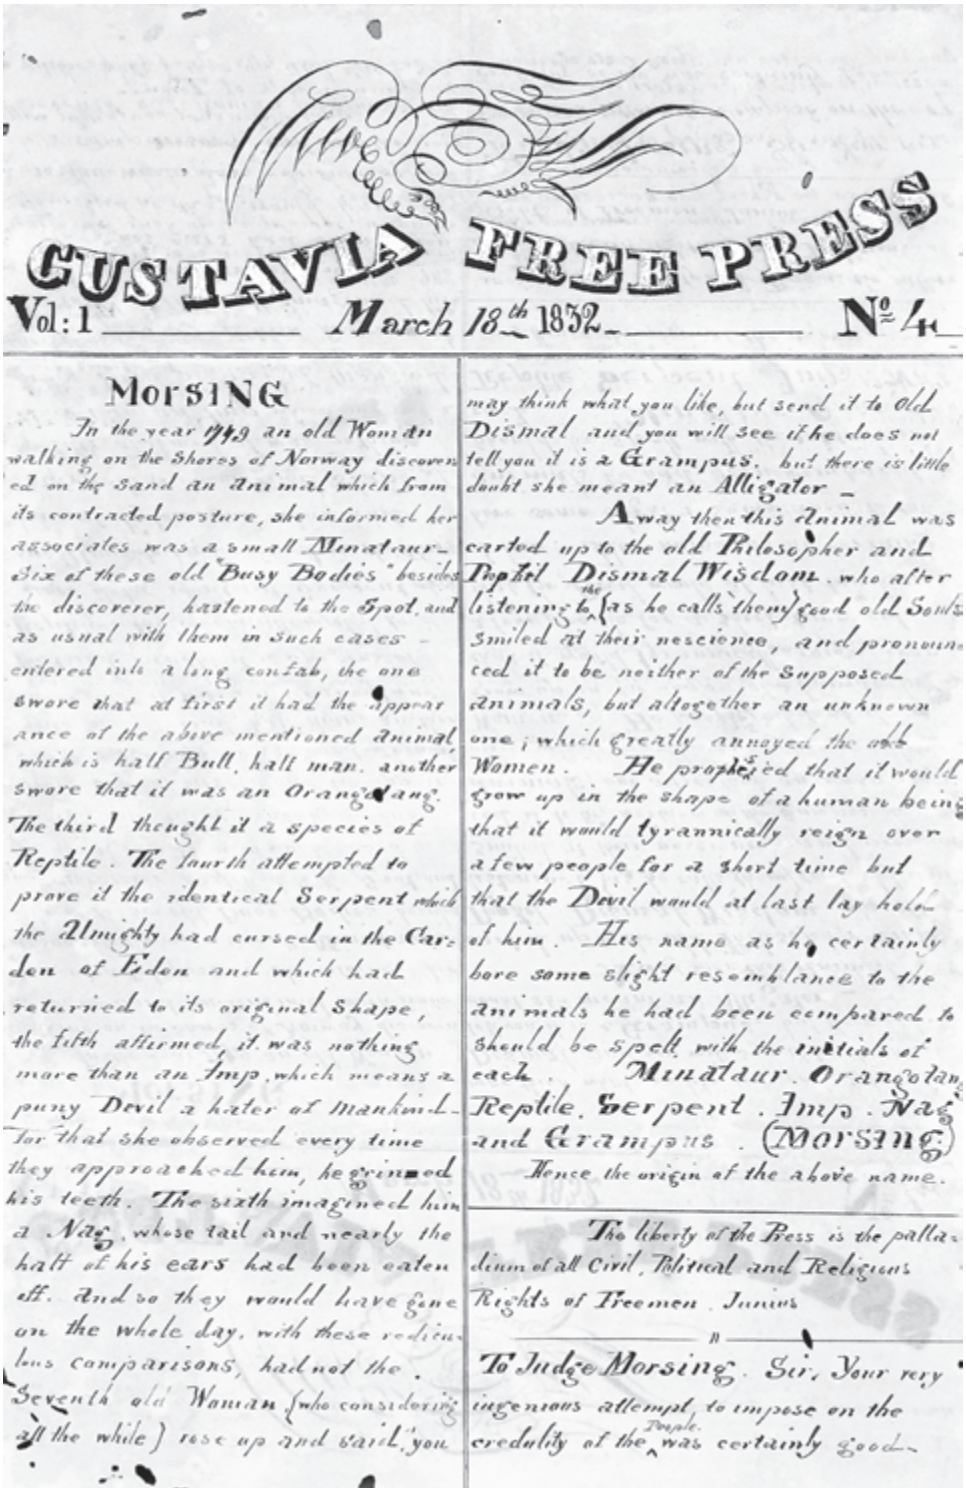 GUSTAVIA FREE PRESS
Vol: 1 March 18th 1832 No 4
MorSING
In the year 1749 an old Woman
walking on the Shores of Norway discover
ed on the Sand an animal which from
its contracted posture, she informed her
associates was a small Minataur_
Six of these old "Busy Bodies" besides
the discorerer, hastened to the Spot, and
as usual with them in such cases _
entered into a long confab, the one
swore that at first it had the appear
ance of the above mentioned animal,
which is half Bull, half man. another
swore that it was an Orangotang.
The third thought it a species of
Reptile. The fourth attempted to
prove it the identical Serpent which
the Almighty had cursed in the Gar=
den of Eden and which had
returned to its original Shape,
the fifth affirmed, it was nothing
more than an Imp, which means a
puny Devil a hater of mankind_
for that she observed every time
they approached him, he grinned
his teeth. The sixth imagined him
a Nag, whose tail and nearly the
half of his ears had been eaten
off. and so they would have gone
on the whole day, with these redicu-
lous comparisons, had not the
Seventh old Woman (who considering
all the while) rose up and said, "you
may think what you like, but send it to Old
Dismal and you will see if he does not
tell you it is a Grampus. but there is little
doubt she meant an Alligator _
Away then this animal was
carted up to the old Philosopher and
Prophet Dismal Wisdom. who after
listening to the (as he calls them) good old Souls
smiled at their nescience, and pronoun
ced it to be neither of the supposed
animals, but altogether an unknown
one; which greatly annoyed the old
Women. He prophesied that it would
grow up in the shape of a human being
that it would tyrannically reign over
a few people for a short time but
that the Devil would at last lay hold
of him. His name as he certainly
bore some slight resemblance to the
animals he had been compared to
should be spelt with the initials of
each. Minataur. Orangotang
Reptile. Serpent. Imp. Nag
and Grampus. (MORSING)
Hence the origin of the above name.
The liberty of the Press is the palla=
dium of all Civil, Political and Religious
Rights of Freemen. Junius
To Judge Morsing. Sir, Your very
ingenious attempt, to impose on the
credulity of the People was certainly good_